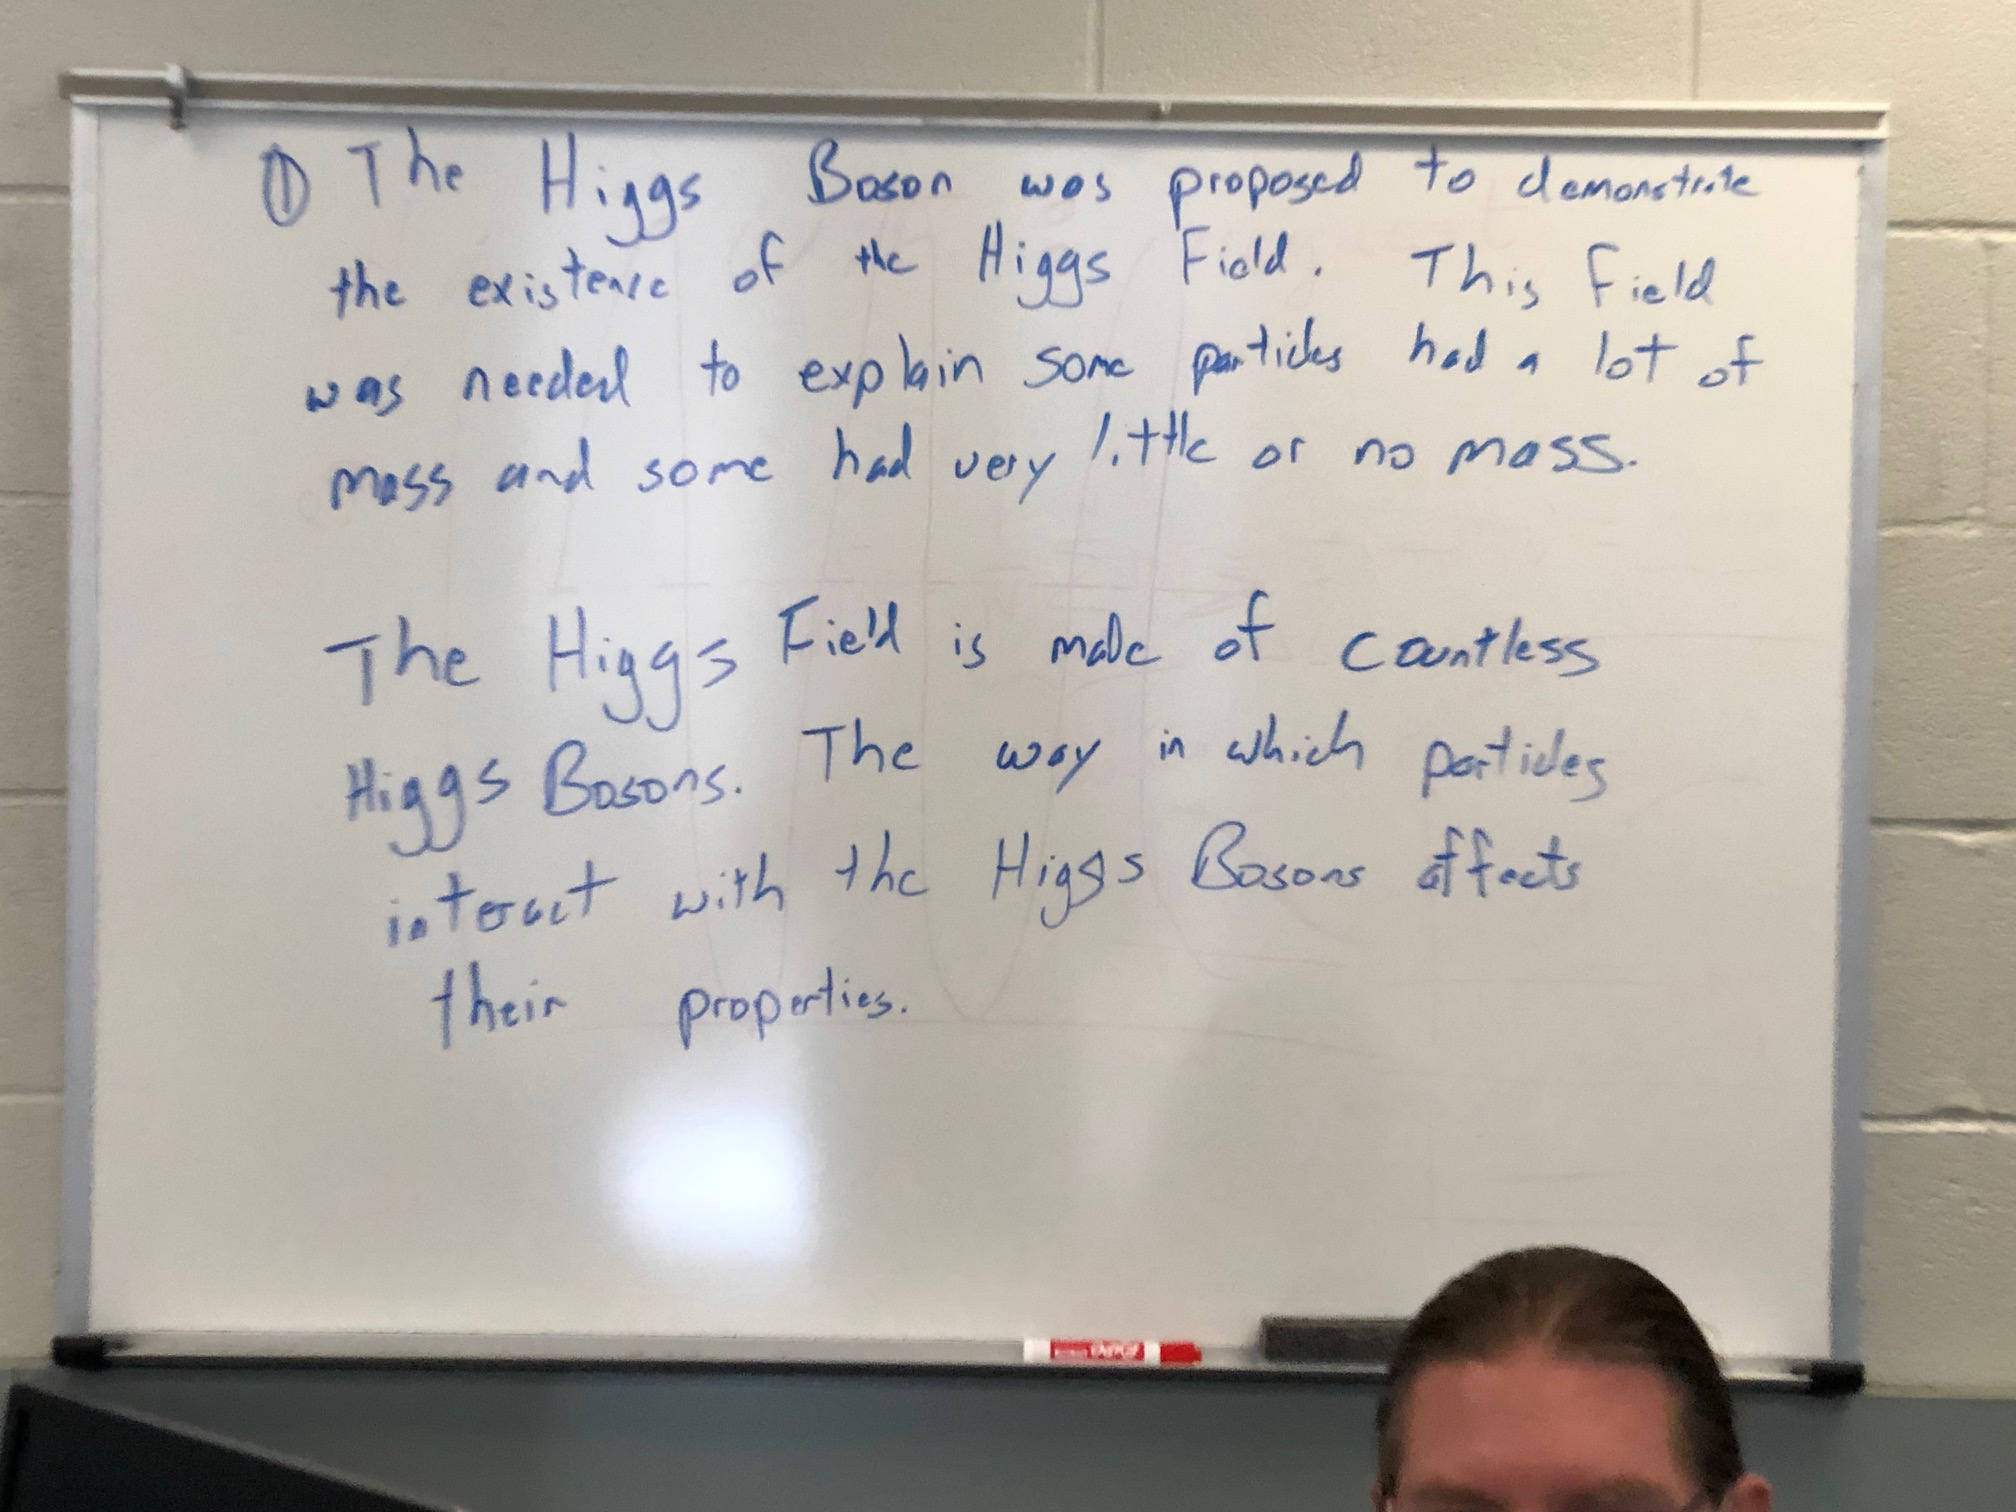 ① The Higgs Boson was proposed to demonstrate
the existence of the Higgs Field. This Field
was needed to explain some particles had a lot of
mass and some had very little or no mass.
The Higgs Field is made of countless
Higgs Bosons. The way in which particles
interact with the Higgs Bosons affects
their properties.